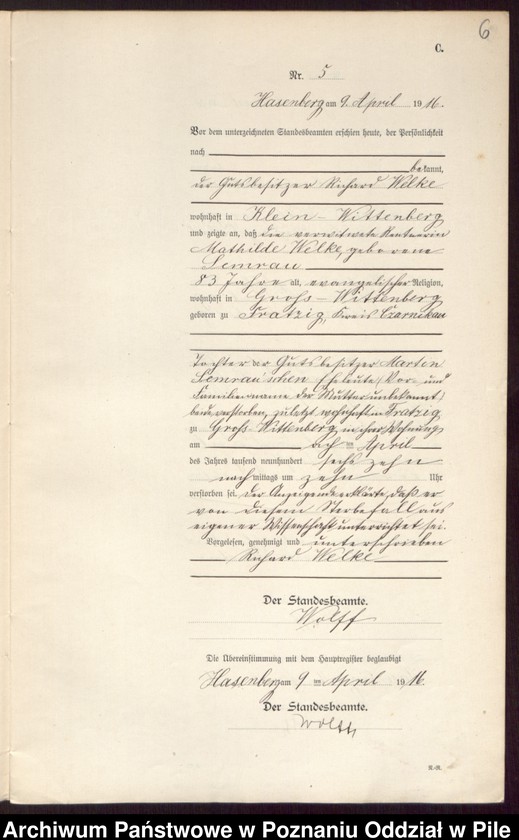 6
C.
Nr. 5
Hasenberg am 9. April 1916.
Vor dem unterzeichneten Standesbeamten erschien heute, der Persönlichkeit
nach
bekannt,
der Gutsbesitzer Richard Welke
wohnhaft in Klein-Wittenberg
und zeigte an, daß die verwitwete Rentnerin
Mathilde Welke, geborene
Semrau
83 Jahre alt, evangelischer Religion,
wohnhaft in Groß-Wittenberg,
geboren zu Fratzig, Kreis Czarnikau
Tochter der Gutsbesitzer Martin
Semrau'schen Eheleute (Vor- und
Familienname der Mutter unbekannt)
beide verstorben, zuletzt wohnhaft in Fratzig,
zu Groß Wittenberg, in ihrer Wohnung
am acht ten April
des Jahres tausend neunhundert sechszehn
nach mittags um zehn Uhr
verstorben sei. Der Anzeigende erklärte, daß er
von diesem Sterbefall aus
eigener Wissenschaft unterrichtet sei.
Vorgelesen, genehmigt und unterschrieben
Richard Welke
Der Standesbeamte.
Wolff
Die Übereinstimmung mit dem Hauptregister beglaubigt
Hasenberg am 9 ten April 1916.
Der Standesbeamte.
Wolff
Archiwum Państwowe w Poznaniu Oddział w Pile